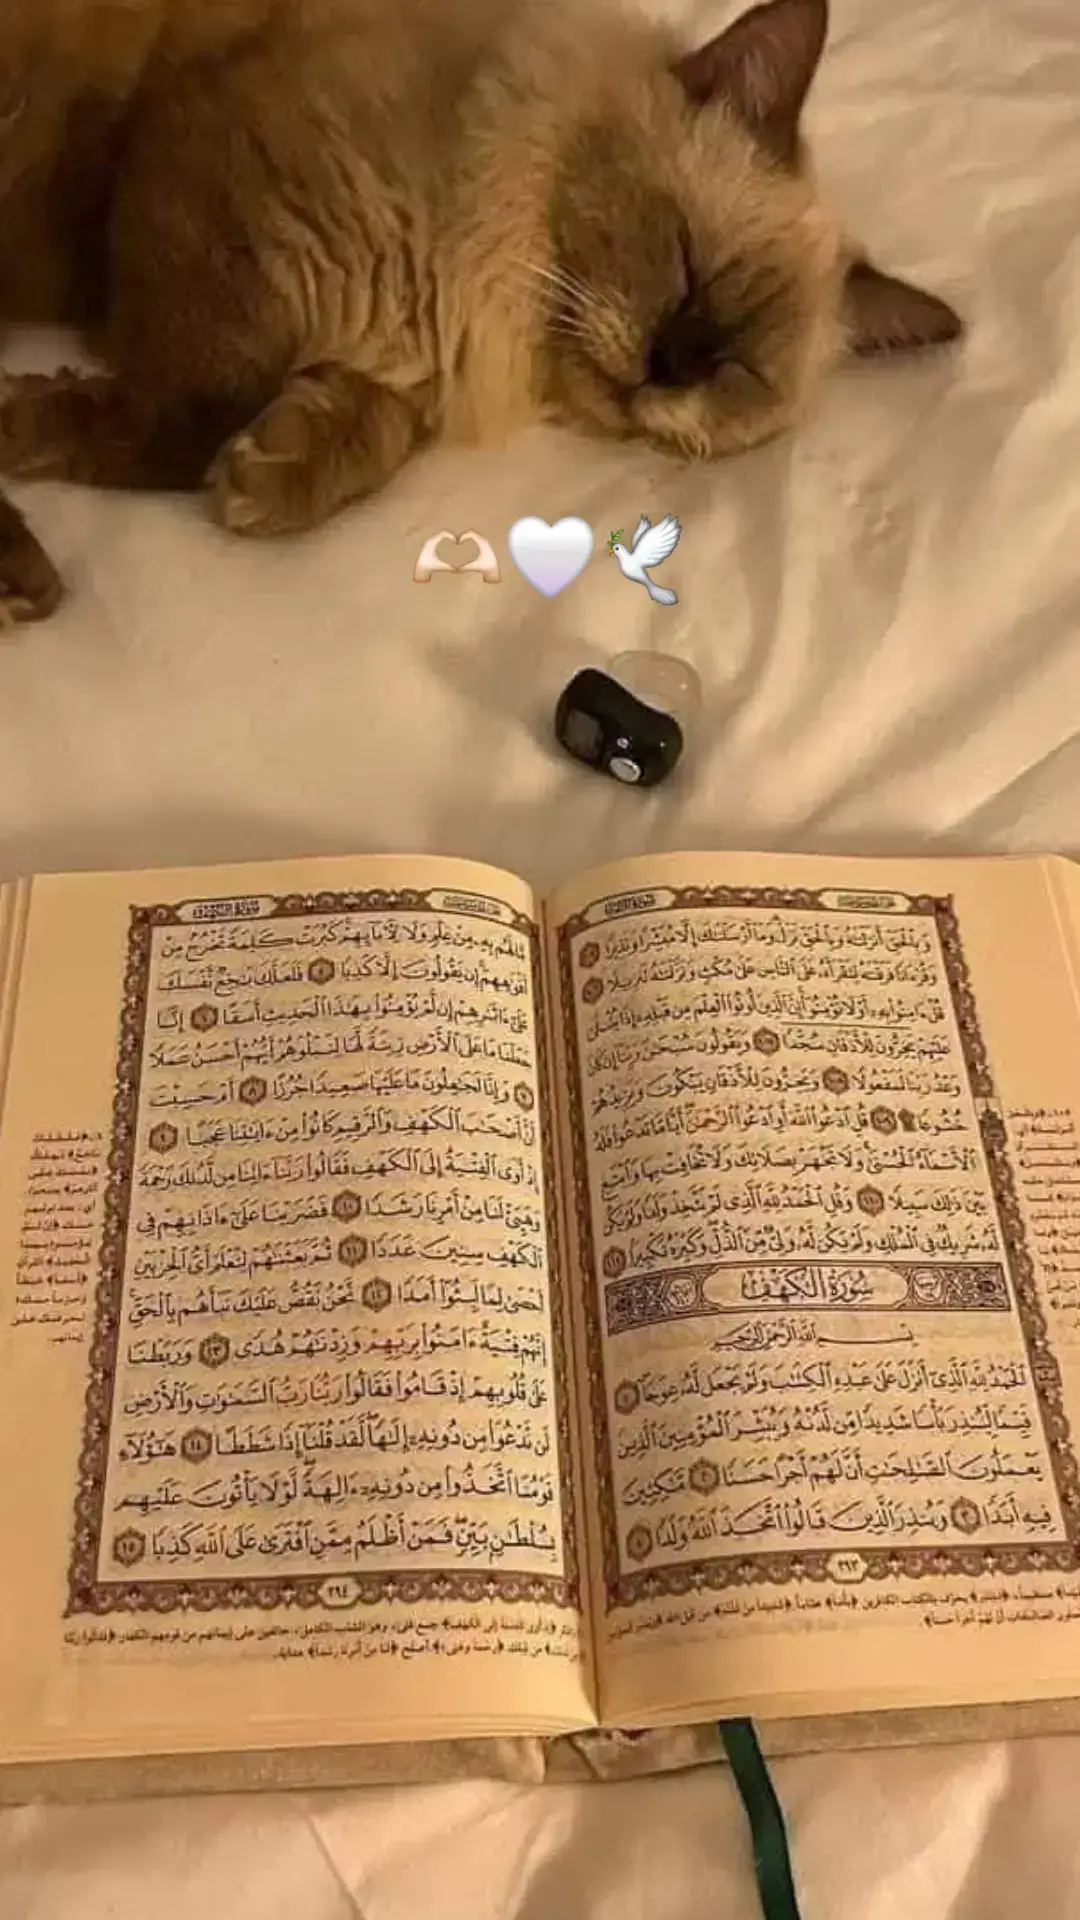 سُورَةُ الإِسْرَاءِ
وَبِالْحَقِّ أَنزَلْنَٰهُ وَبِالْحَقِّ نَزَلَ وَمَا أَرْسَلْنَٰكَ إِلَّا مُبَشِّرًا وَنَذِيرًا ١٠٥
وَقُرْءَانًا فَرَقْنَٰهُ لِتَقْرَأَهُۥ عَلَى النَّاسِ عَلَىٰ مُكْثٍ وَنَزَّلْنَٰهُ تَنزِيلًا ١٠٦
قُلْ ءَامِنُوا بِهِۦٓ أَوْ لَا تُؤْمِنُوٓا إِنَّ الَّذِينَ أُوتُوا الْعِلْمَ مِن قَبْلِهِۦٓ إِذَا يُتْلَىٰ
عَلَيْهِمْ يَخِرُّونَ لِلْأَذْقَانِ سُجَّدًا ١٠٧ وَيَقُولُونَ سُبْحَٰنَ رَبِّنَا إِن كَانَ
وَعْدُ رَبِّنَا لَمَفْعُولًا ١٠٨ وَيَخِرُّونَ لِلْأَذْقَانِ يَبْكُونَ وَيَزِيدُهُمْ
خُشُوعًا ۩ ١٠٩ قُلِ ادْعُوا اللَّهَ أَوِ ادْعُوا الرَّحْمَٰنَ أَيًّا مَّا تَدْعُوا فَلَهُ
الْأَسْمَاءُ الْحُسْنَىٰ وَلَا تَجْهَرْ بِصَلَاتِكَ وَلَا تُخَافِتْ بِهَا وَابْتَغِ
بَيْنَ ذَٰلِكَ سَبِيلًا ١١٠ وَقُلِ الْحَمْدُ لِلَّهِ الَّذِي لَمْ يَتَّخِذْ وَلَدًا وَلَمْ يَكُن
لَّهُۥ شَرِيكٌ فِي الْمُلْكِ وَلَمْ يَكُن لَّهُۥ وَلِيٌّ مِّنَ الذُّلِّ وَكَبِّرْهُ تَكْبِيرًا ١١١
سُورَةُ الْكَهْفِ
بِسْمِ اللَّهِ الرَّحْمَٰنِ الرَّحِيمِ
الْحَمْدُ لِلَّهِ الَّذِي أَنزَلَ عَلَىٰ عَبْدِهِ الْكِتَٰبَ وَلَمْ يَجْعَل لَّهُۥ عِوَجًا ١
قَيِّمًا لِّيُنذِرَ بَأْسًا شَدِيدًا مِّن لَّدُنْهُ وَيُبَشِّرَ الْمُؤْمِنِينَ الَّذِينَ
يَعْمَلُونَ الصَّٰلِحَٰتِ أَنَّ لَهُمْ أَجْرًا حَسَنًا ٢ مَّٰكِثِينَ
فِيهِ أَبَدًا ٣ وَيُنذِرَ الَّذِينَ قَالُوا اتَّخَذَ اللَّهُ وَلَدًا ٤
٢٩٣
سُورَةُ الْكَهْفِ
مَّا لَهُم بِهِۦ مِنْ عِلْمٍ وَلَا لِآبَائِهِمْ كَبُرَتْ كَلِمَةً تَخْرُجُ مِنْ
أَفْوَٰهِهِمْ إِن يَقُولُونَ إِلَّا كَذِبًا ٥ فَلَعَلَّكَ بَٰخِعٌ نَّفْسَكَ
عَلَىٰ ءَاثَٰرِهِمْ إِن لَّمْ يُؤْمِنُوا بِهَٰذَا الْحَدِيثِ أَسَفًا ٦ إِنَّا
جَعَلْنَا مَا عَلَى الْأَرْضِ زِينَةً لَّهَا لِنَبْلُوَهُمْ أَيُّهُمْ أَحْسَنُ عَمَلًا
٧ وَإِنَّا لَجَٰعِلُونَ مَا عَلَيْهَا صَعِيدًا جُرُزًا ٨ أَمْ حَسِبْتَ
أَنَّ أَصْحَٰبَ الْكَهْفِ وَالرَّقِيمِ كَانُوا مِنْ ءَايَٰتِنَا عَجَبًا ٩
إِذْ أَوَى الْفِتْيَةُ إِلَى الْكَهْفِ فَقَالُوا رَبَّنَا ءَاتِنَا مِن لَّدُنكَ رَحْمَةً
وَهَيِّئْ لَنَا مِنْ أَمْرِنَا رَشَدًا ١٠ فَضَرَبْنَا عَلَىٰ ءَاذَانِهِمْ فِي
الْكَهْفِ سِنِينَ عَدَدًا ١١ ثُمَّ بَعَثْنَٰهُمْ لِنَعْلَمَ أَيُّ الْحِزْبَيْنِ
أَحْصَىٰ لِمَا لَبِثُوا أَمَدًا ١٢ نَّحْنُ نَقُصُّ عَلَيْكَ نَبَأَهُم بِالْحَقِّ
إِنَّهُمْ فِتْيَةٌ ءَامَنُوا بِرَبِّهِمْ وَزِدْنَٰهُمْ هُدًى ١٣ وَرَبَطْنَا
عَلَىٰ قُلُوبِهِمْ إِذْ قَامُوا فَقَالُوا رَبُّنَا رَبُّ السَّمَٰوَٰتِ وَالْأَرْضِ
لَن نَّدْعُوَا مِن دُونِهِۦٓ إِلَٰهًا لَّقَدْ قُلْنَا إِذًا شَطَطًا ١٤ هَٰؤُلَاءِ
قَوْمُنَا اتَّخَذُوا مِن دُونِهِۦٓ ءَالِهَةً لَّوْلَا يَأْتُونَ عَلَيْهِم
بِسُلْطَٰنٍ بَيِّنٍ فَمَنْ أَظْلَمُ مِمَّنِ افْتَرَىٰ عَلَى اللَّهِ كَذِبًا ١٥
٢٩٤